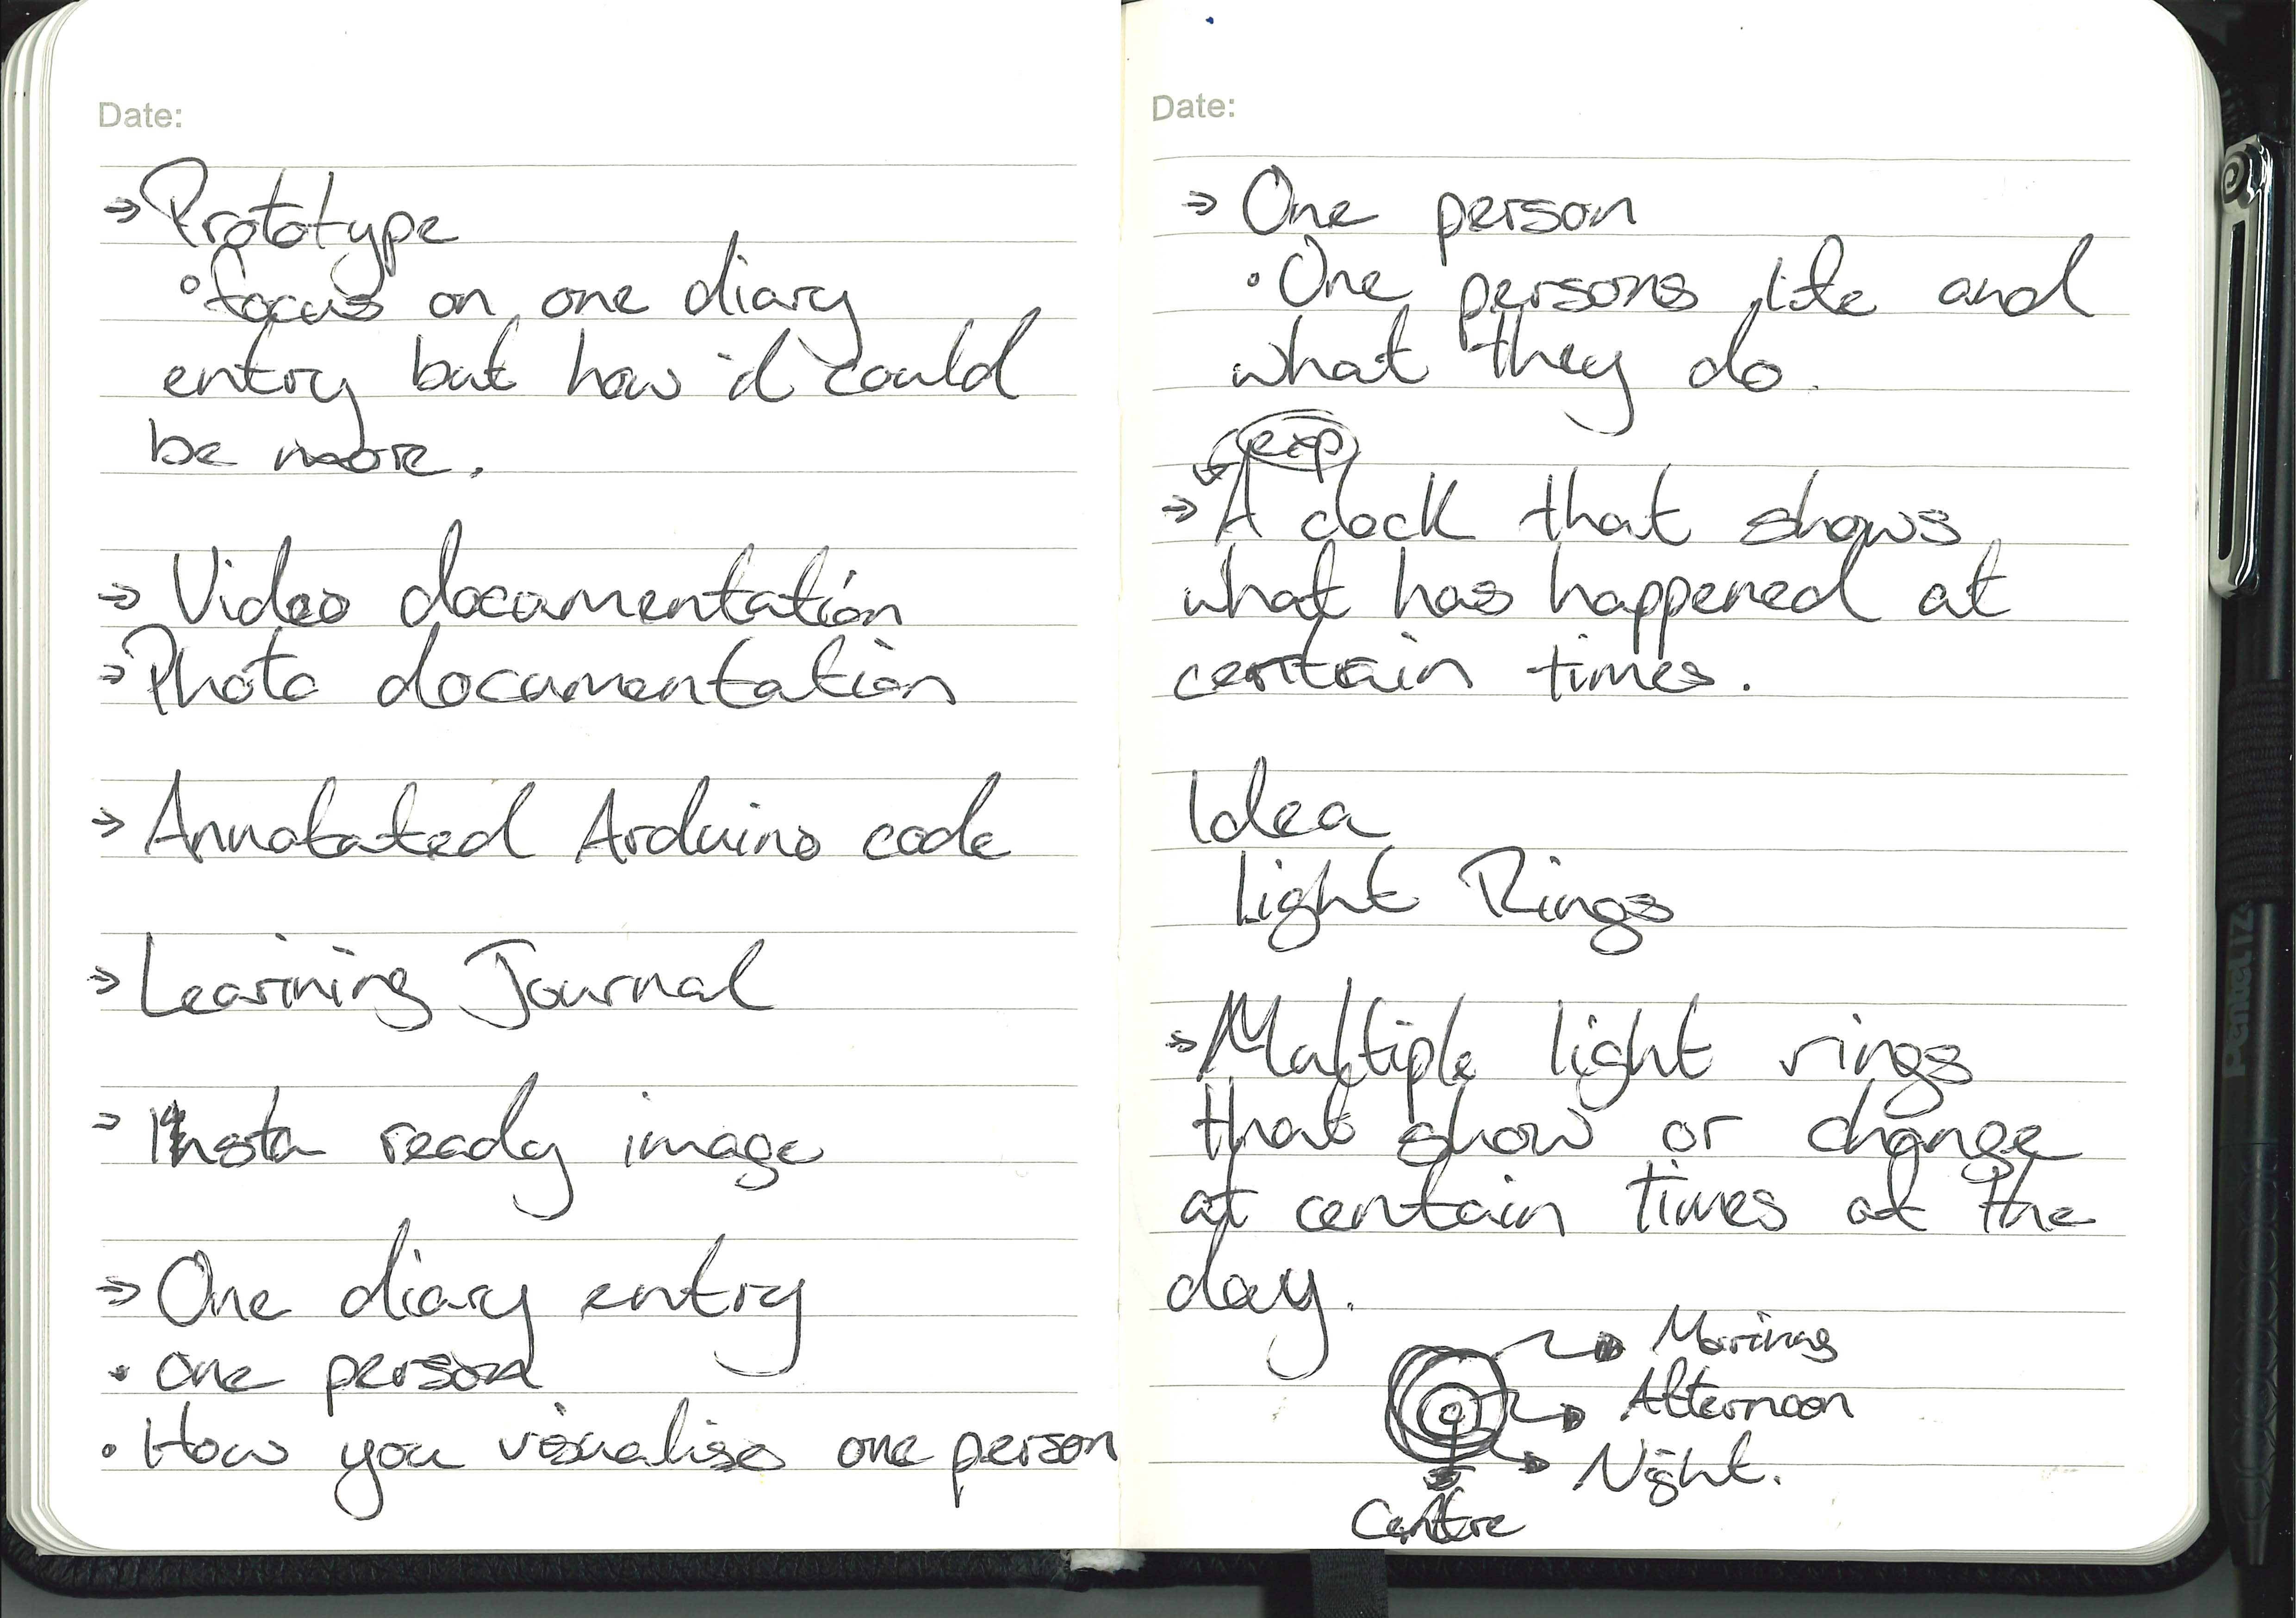 Date:
→ Prototype
• focus on one diary
entry but how it could
be more.
→ Video documentation
→ Photo documentation
→ Annotated Arduino code
→ Learning Journal
→ Insta ready image
→ One diary entry
• One person
• How you visualise one person
Date:
→ One person
• One persons life and
what they do.
exp
→ A clock that shows
what has happened at
certain times.
Idea
Light Rings
→ Multiple light rings
that show or change
at certain times at the
day.
Morning
Afternoon
Night.
Centre
PenualIZ